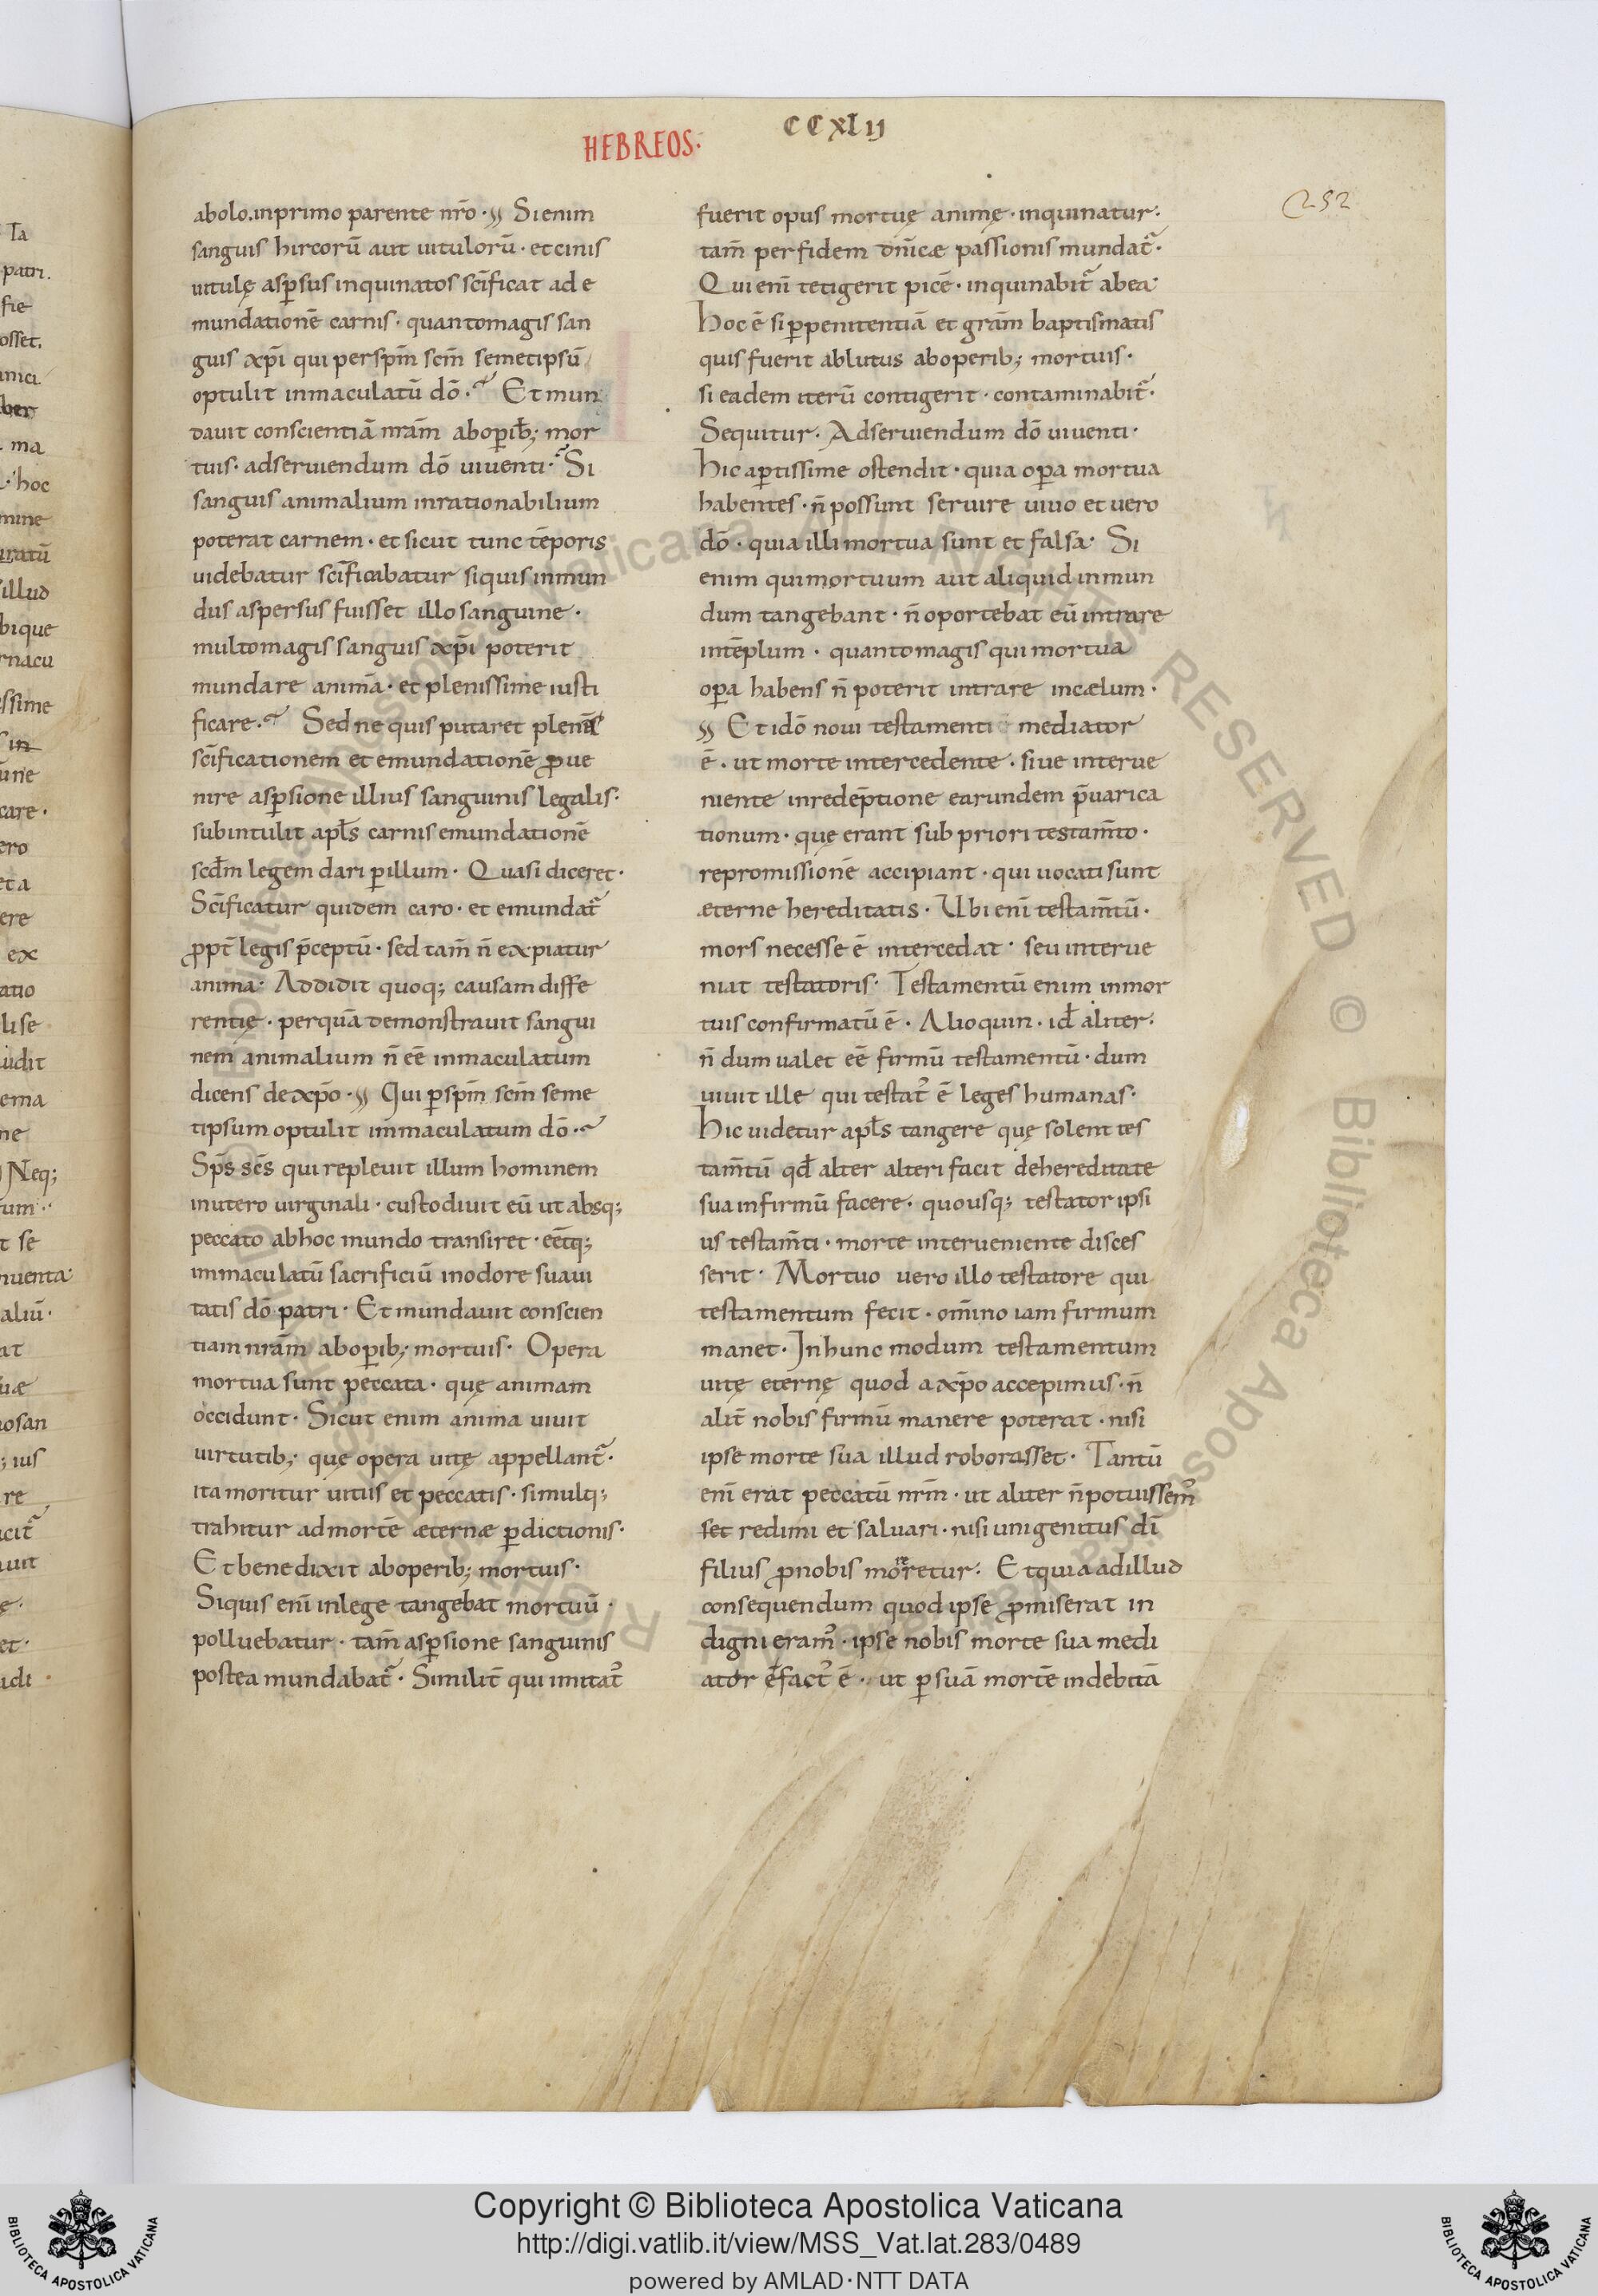 CCXLIJ
HEBREOS.
252
abolo.inprimo parente nr̄o · Si enim
sanguis hircorū aut uitulorū · et cinis
uitulę asꝑsus inquinatos sc̄ificat ad e
mundationē carnis · quantomagis san
guis xp̄i qui per sp̄m sc̄m semetipsū
optulit inmaculatū dō · Et mun
dauit conscientiā nrām ab oꝑib; mor
tuis · ad seruiendum dō uiuenti · Si
sanguis animalium inrationabilium
poterat carnem · et sicut tunc tēporis
uidebatur sc̄ificabatur siquis inmun
dus aspersus fuisset illo sanguine ·
multomagis sanguis xp̄i poterit
mundare animā · et plenissime iusti
ficare · Sed ne quis putaret plenā
sc̄ificationem et emundationē ꝓue
nire asꝑsione illius sanguinis legalis ·
subintulit apl̄s carnis emundationē
scd̄m legem dari ꝑ illum · Quasi diceret ·
Sc̄ificatur quidem caro · et emundat᷑
ꝓpt̄ legis p̄ceptū · sed tam̄ n̄ expiatur
anima · Addidit quoq; causam diffe
rentię · per quā demonstrauit sangui
nem animalium n̄ eē inmaculatum
dicens de xp̄o · Qui ꝑ sp̄m sc̄m seme
tipsum optulit immaculatum dō ·
Sp̄s sc̄s qui repleuit illum hominem
in utero uirginali · custodiuit eū ut absq;
peccato ab hoc mundo transiret · eētq;
immaculatū sacrificiū in odore suaui
tatis dō patri · Et mundauit conscien
tiam nrām ab oꝑib; mortuis · Opera
mortua sunt peccata · quę animam
occidunt · Sicut enim anima uiuit
uirtutib; quę opera uitę appellant᷑ ·
ita moritur uitiis et peccatis · simulq;
trahitur ad mortē æternæ ꝑditionis ·
Et bene dixit ab operib; mortuis ·
Siquis enī in lege tangebat mortuū ·
polluebatur · tam̄ asꝑsione sanguinis
postea mundabat᷑ · Similit̄ qui imitat᷑
fuerit opus mortuę animę · inquinatur ·
tam̄ per fidem dn̄icæ passionis mundat᷑ ·
Qui enī tetigerit picē · inquinabit᷑ ab ea ·
Hoc ē si ꝑ penitentiā et grām baptismatis
quis fuerit ablutus ab operib; mortuis ·
si eadem iterū contigerit · contaminabit᷑ ·
Sequitur · Ad seruiendum dō uiuenti ·
Hic aptissime ostendit · quia oꝑa mortua
habentes · n̄ possunt seruire uiuo et uero
dō · quia illi mortua sunt et falsa · Si
enim qui mortuum aut aliquid inmun
dum tangebant · n̄ oportebat eū intrare
in tēplum · quantomagis qui mortua
oꝑa habens n̄ poterit intrare in cælum ·
Et idō noui testamenti mediator
ē · ut morte intercedente · siue interue
niente in redēptione earundem p̄uarica
tionum · quę erant sub priori testam̄to ·
repromissionē accipiant · qui uocati sunt
æterne hereditatis · Ubi enī testam̄tū ·
mors necesse ē intercedat · seu interue
niat testatoris · Testamentū enim in mor
tuis confirmatū ē · Alioquin · id̄ aliter ·
n̄ dum ualet eē firmū testamentū · dum
uiuit ille qui testat᷑ ē leges humanas ·
Hic uidetur apl̄s tangere quę solent tes
tam̄tū qd̄ alter alteri facit de hereditate
sua infirmū facere · quousq; testator ipsi
us testam̄ti · morte interueniente disces
serit · Mortuo uero illo testatore qui
testamentum fecit · om̄ino iam firmum
manet · In hunc modum testamentum
uitę eternę quod a xp̄o accepimus · n̄
alit̄ nobis firmū manere poterat · nisi
ipse morte sua illud roborasset · Tantū
enī erat peccatū nrm̄ · ut aliter n̄ potuissem᷒
set redimi et saluari · nisi unigenitus dī
filius ꝓ nobis moreretur · Et quia ad illud
consequendum quod ipse ꝓmiserat in
digni eram᷒ · ipse nobis morte sua medi
ator fact᷒ ē · ut ꝑ suā mortē indebitā
Copyright © Biblioteca Apostolica Vaticana
http://digi.vatlib.it/view/MSS_Vat.lat.283/0489
powered by AMLAD·NTT DATA
BIBLIOTECA APOSTOLICA VATICANA
BIBLIOTECA APOSTOLICA VATICANA